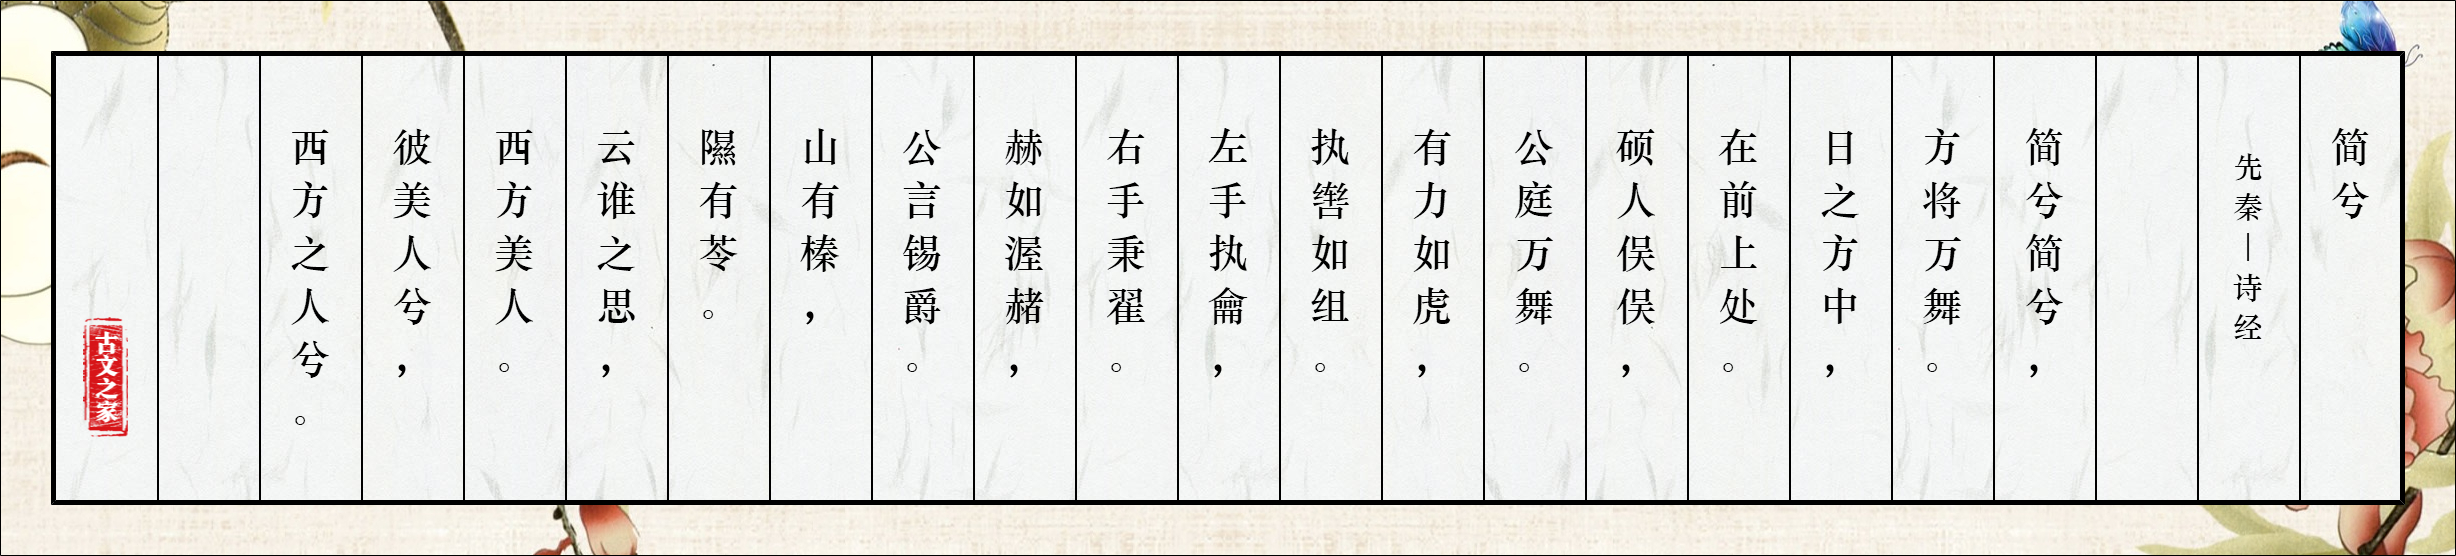 简兮
先秦—诗经
简兮简兮，
方将万舞。
日之方中，
在前上处。
硕人俣俣，
公庭万舞。
有力如虎，
执辔如组。
左手执龠，
右手秉翟。
赫如渥赭，
公言锡爵。
山有榛，
隰有苓。
云谁之思，
西方美人。
彼美人兮，
西方之人兮。
古文之家